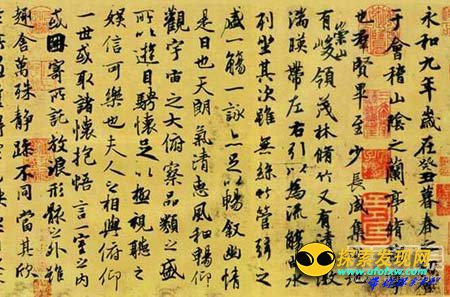 永和九年歲在癸丑暮春之初
于會稽山陰之蘭亭脩
也羣賢畢至少長咸集
有崇山峻領茂林脩竹又有清流激
湍暎帶左右引以為流觴曲水
列坐其次雖無絲竹管弦之
盛一觴一詠亦足以暢敘幽情
是日也天朗氣清惠風和暢仰
觀宇宙之大俯察品類之盛
所以遊目騁懷足以極視聽之
娛信可樂也夫人之相與俯仰
一世或取諸懷抱悟言一室之內
或因寄所託放浪形骸之外雖
趣舍萬殊靜躁不同當其欣
探索发现网
www.ufoxw.com